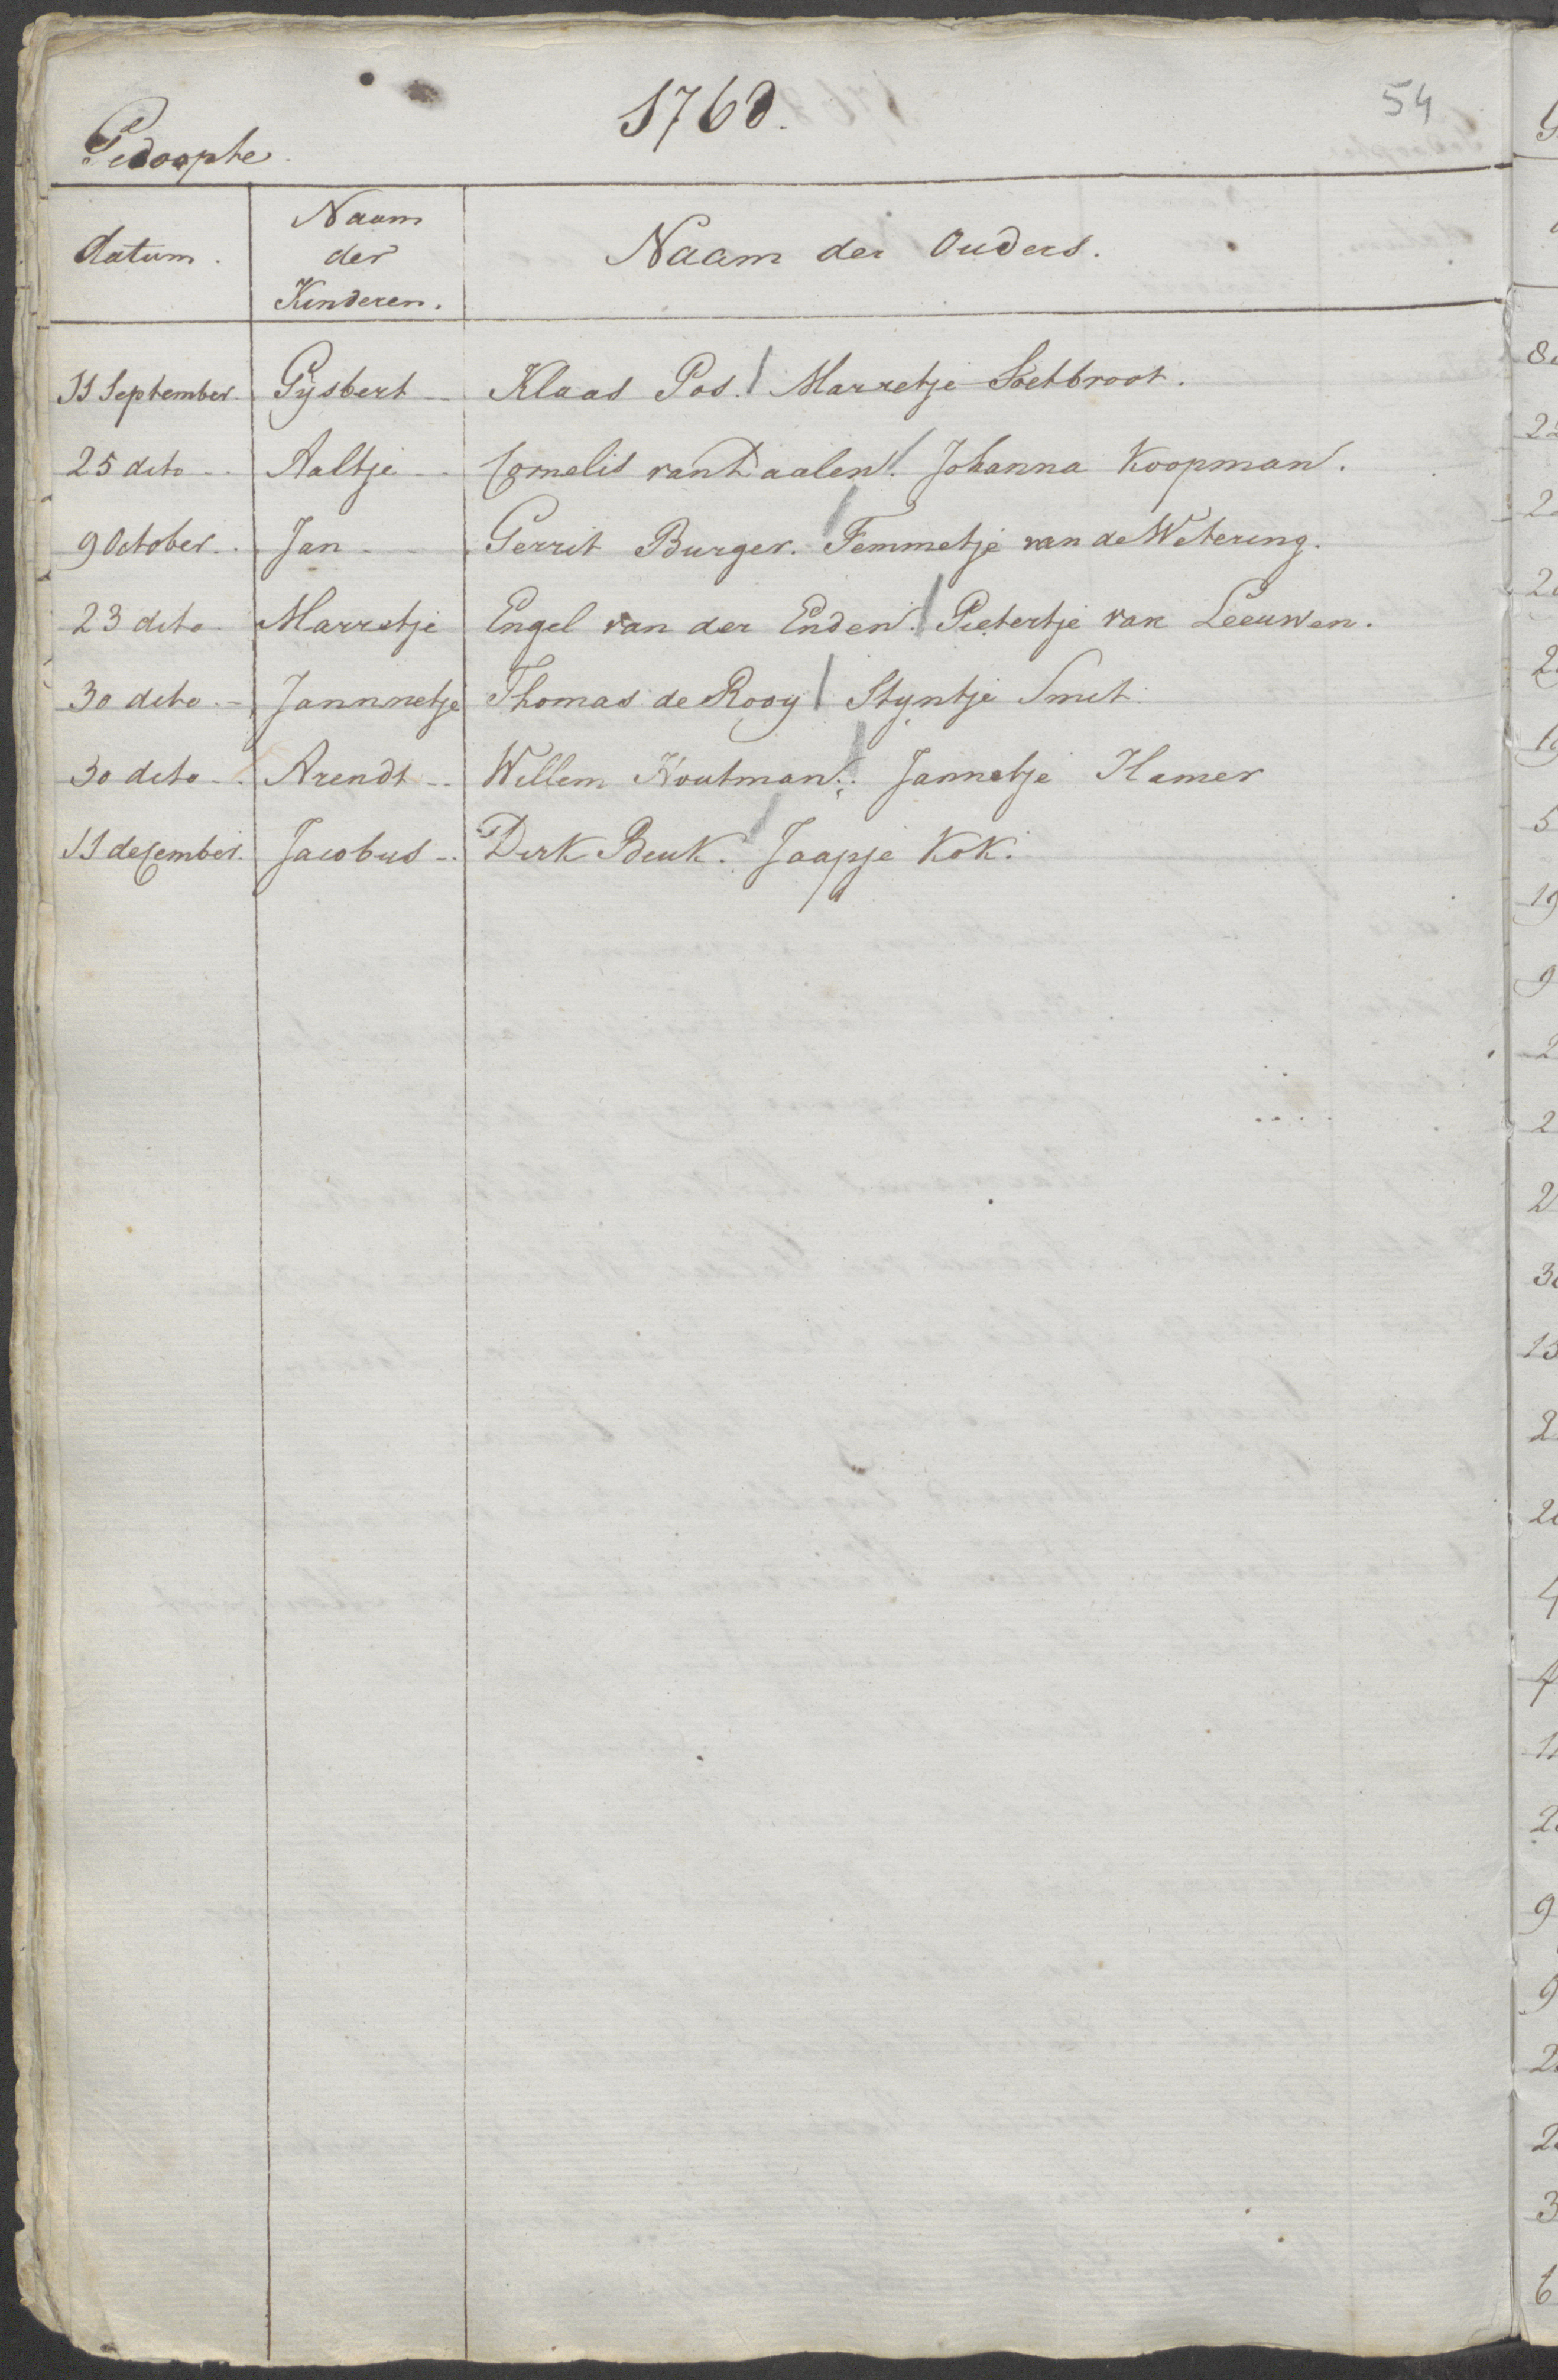 1768.
54
Gedoopte.
datum.
Naam
der
Kinderen.
Naam der Ouders.
11 September. Gysbert -- Klaas Pos. / Marretje Soetbroot.
25 dito -- Aaltje -- Cornelis van Daalen. / Johanna Koopman.
9 October. Jan -- Gerrit Burger. / Femmetje van de Wetering.
23 dito. Marretje Engel van der Enden. / Pietertje van Leeuwen.
30 dito -- Jannnetje Thomas de Rooy / Styntje Smit.
30 dito -- Arendt -- Willem Houtman. / Jannetje Hamer
11 december. Jacobus -- Dirk Beuk. / Jaapje Kok.